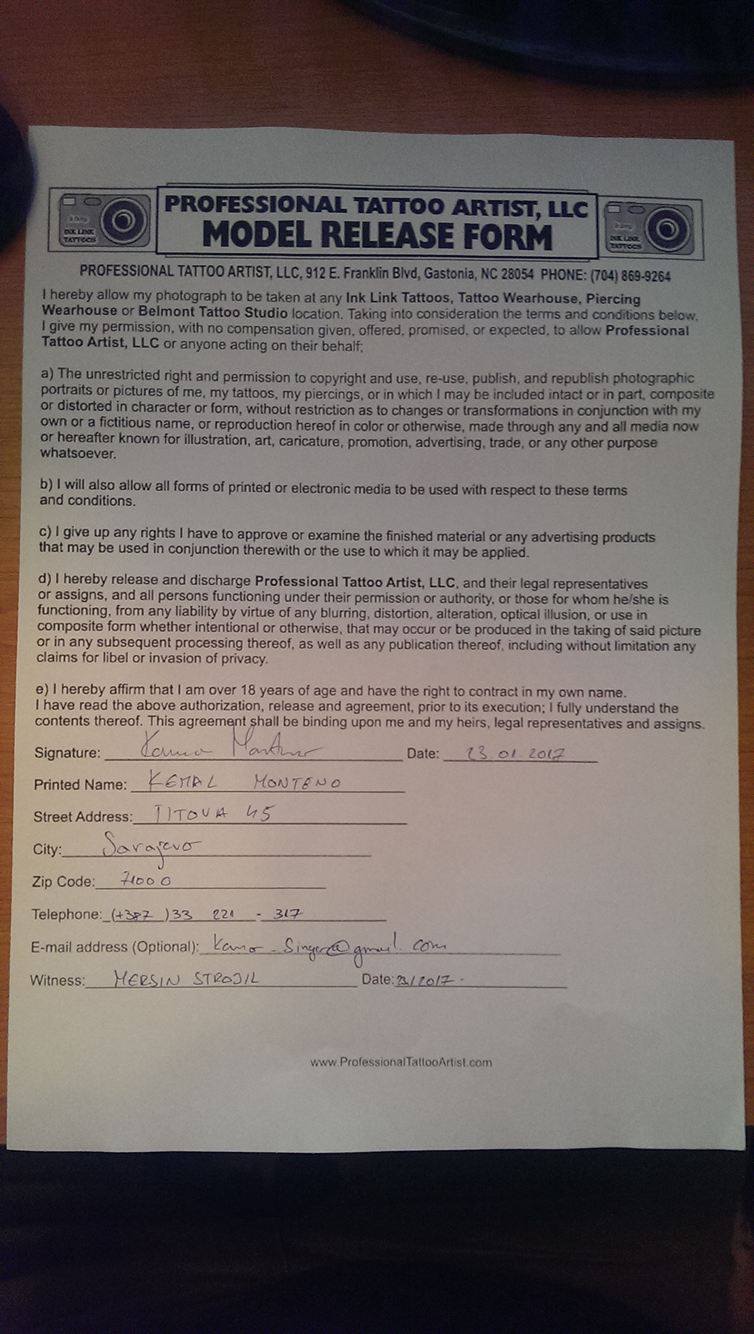 PROFESSIONAL TATTOO ARTIST, LLC
MODEL RELEASE FORM
INK LINK
TATTOOS
INK LINK
TATTOOS
PROFESSIONAL TATTOO ARTIST, LLC, 912 E. Franklin Blvd, Gastonia, NC 28054 PHONE: (704) 869-9264
I hereby allow my photograph to be taken at any Ink Link Tattoos, Tattoo Wearhouse, Piercing
Wearhouse or Belmont Tattoo Studio location. Taking into consideration the terms and conditions below,
I give my permission, with no compensation given, offered, promised, or expected, to allow Professional
Tattoo Artist, LLC or anyone acting on their behalf;
a) The unrestricted right and permission to copyright and use, re-use, publish, and republish photographic
portraits or pictures of me, my tattoos, my piercings, or in which I may be included intact or in part, composite
or distorted in character or form, without restriction as to changes or transformations in conjunction with my
own or a fictitious name, or reproduction hereof in color or otherwise, made through any and all media now
or hereafter known for illustration, art, caricature, promotion, advertising, trade, or any other purpose
whatsoever.
b) I will also allow all forms of printed or electronic media to be used with respect to these terms
and conditions.
c) I give up any rights I have to approve or examine the finished material or any advertising products
that may be used in conjunction therewith or the use to which it may be applied.
d) I hereby release and discharge Professional Tattoo Artist, LLC, and their legal representatives
or assigns, and all persons functioning under their permission or authority, or those for whom he/she is
functioning, from any liability by virtue of any blurring, distortion, alteration, optical illusion, or use in
composite form whether intentional or otherwise, that may occur or be produced in the taking of said picture
or in any subsequent processing thereof, as well as any publication thereof, including without limitation any
claims for libel or invasion of privacy.
e) I hereby affirm that I am over 18 years of age and have the right to contract in my own name.
I have read the above authorization, release and agreement, prior to its execution; I fully understand the
contents thereof. This agreement shall be binding upon me and my heirs, legal representatives and assigns.
Signature: Date: 23.01.2017
Printed Name: KEMAL MONTENO
Street Address: TITOVA 45
City: Sarajevo
Zip Code: 71000
Telephone: (+387 )33 221 - 317
E-mail address (Optional): kamo_singer@gmail.com
Witness: MERSIN STROJIL Date: 23/2017.
www.ProfessionalTattooArtist.com